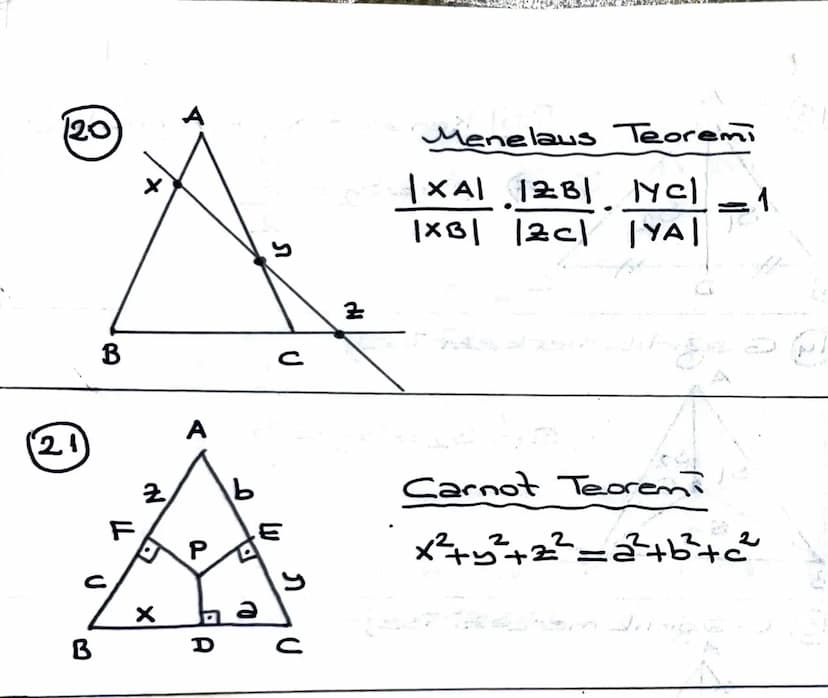 20
A
X
Y
Z
B
C
Menelaus Teoremi
|XA| / |XB| . |ZB| / |ZC| . |YC| / |YA| = 1
21
A
z b
F E
P
c y
x a
B D C
Carnot Teoremi
x²+y²+z²=a²+b²+c²